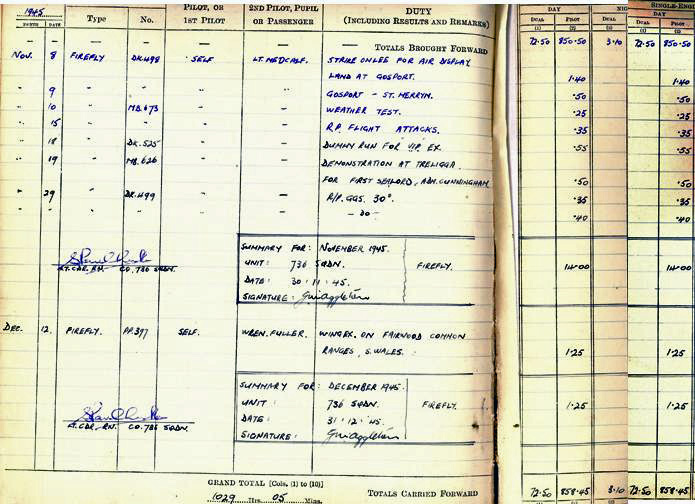 1945
MONTH DATE Type No. PILOT, OR 1ST PILOT 2ND PILOT, PUPIL OR PASSENGER DUTY (INCLUDING RESULTS AND REMARKS) DAY DUAL (1) PILOT (2) NIG DUAL (3) SINGLE-ENG DAY DUAL (1) PILOT (2)
— — — — — — TOTALS BROUGHT FORWARD 72.50 850.50 3.10 72.50 850.50
NOV. 8 FIREFLY DK.498 SELF LT. MEDCALF. STRIKE ON LEE FOR AIR DISPLAY
LAND AT GOSPORT. 1.40 1.40
" 9 " " " — GOSPORT - ST. MERRYN. .50 .50
" 10 " MB.673 " — WEATHER TEST. .25 .25
" 15 " " — R.P. FLIGHT ATTACKS. .35 .35
" 18 " DK.525 " — DUMMY RUN FOR V.I.P. EX. .55 .55
" 19 " MB.626 " — DEMONSTRATION AT TRELIGGA
FOR FIRST SEALORD, ADM. CUNNINGHAM .50 .50
" 29 " DK.499 " — R/P. GGS. 30°. .35 .35
" " " — — DO — .40 .40
SUMMARY FOR: NOVEMBER 1945.
UNIT: 736 SQDN. FIREFLY. 14.00 14.00
LT. CDR. RN. CO. 736 SQDN. DATE: 30.11.45.
SIGNATURE:
DEC. 12. FIREFLY. PP.397 SELF. WREN. FULLER. WINGEX. ON FAIRWOOD COMMON
RANGES, S. WALES. 1.25 1.25
SUMMARY FOR: DECEMBER 1945.
UNIT: 736 SQDN. FIREFLY. 1.25 1.25
LT. CDR. RN. CO. 736 SQDN. DATE: 31.12.45.
SIGNATURE:
GRAND TOTAL [Cols. (1) to (10)]
1029 Hrs. 05 Mins. TOTALS CARRIED FORWARD 72.50 858.45 3.10 72.50 858.45